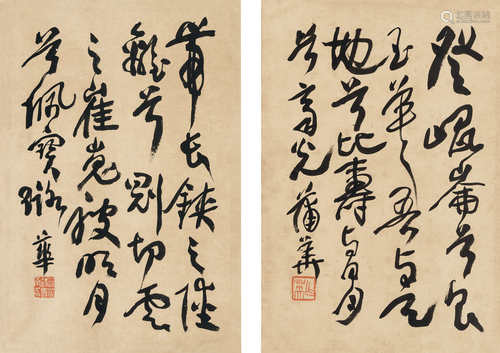 登崐崘兮食
玉英吾与天
地兮比壽与日月
兮齊光 蒲華
帶長鋏之陸
離兮冠切雲
之崔嵬被明月
兮佩寶璐 華